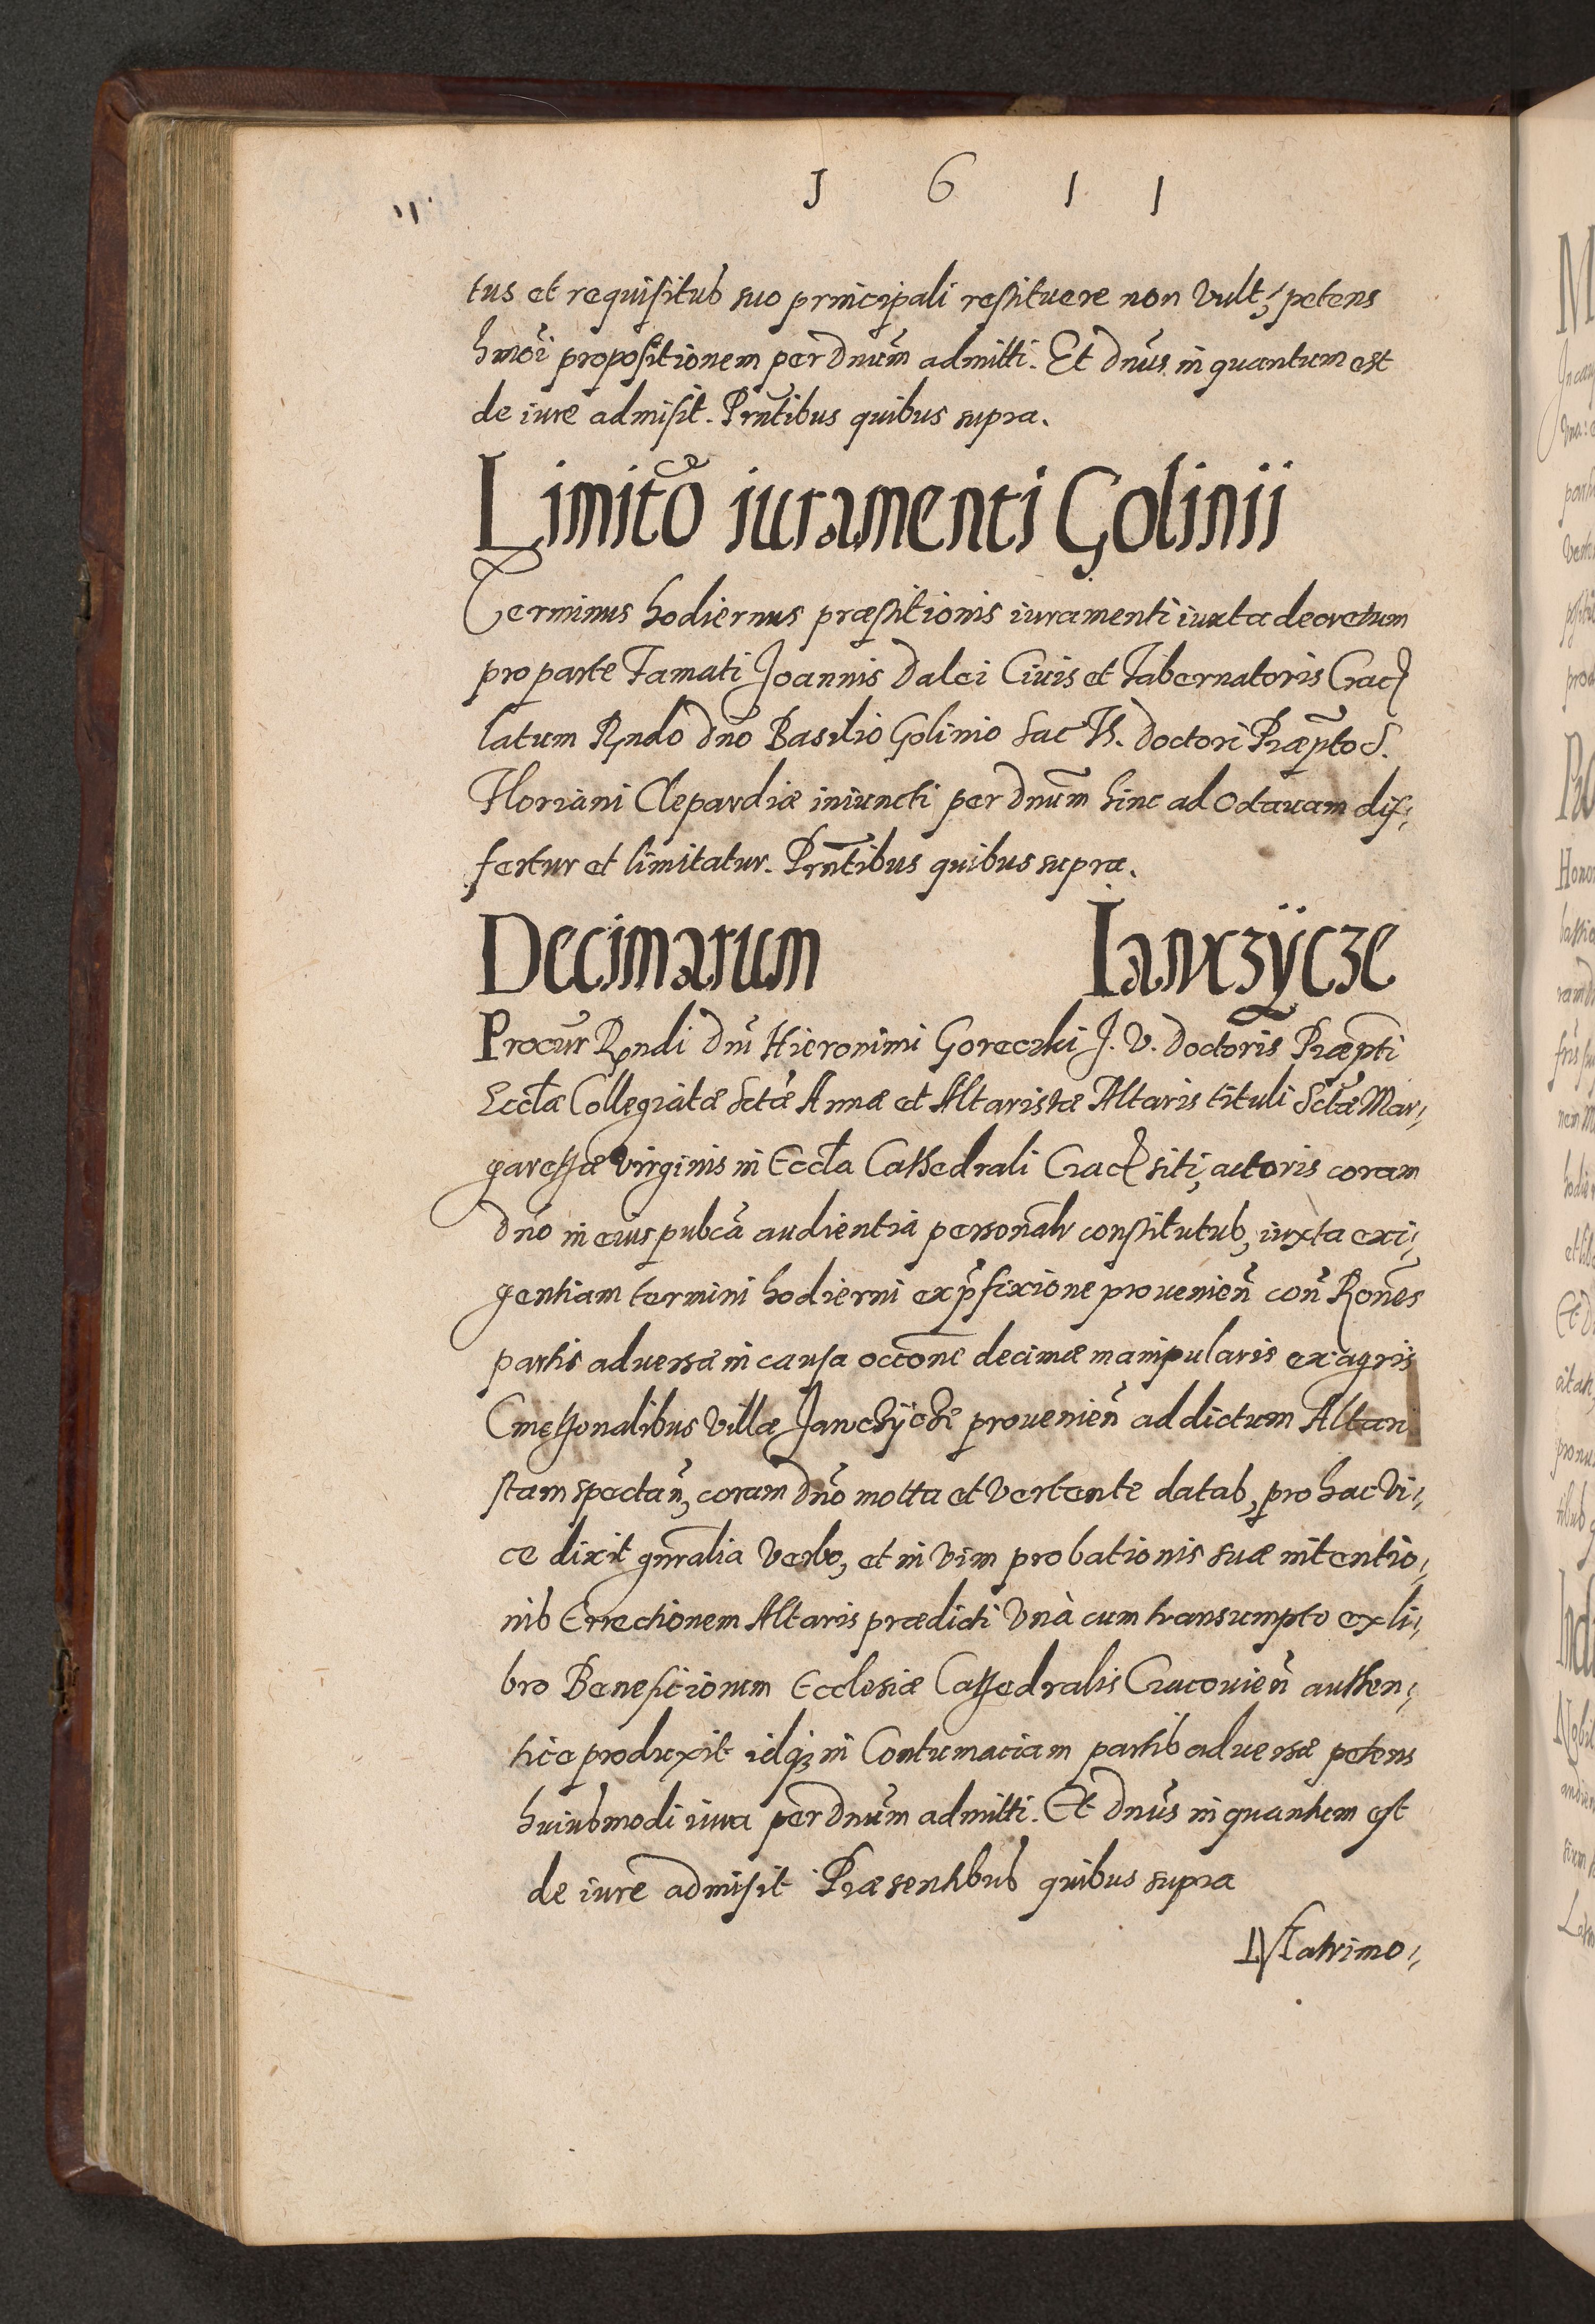 1 6 1 1
tus et requisitus suo principali restituere non vult, petens
hmoi propositionem per Dnum admitti. Et Dnus in quantum est
de iure admisit. Prntibus quibus supra.
Limito iuramenti Golinii
Terminus hodiernus præstitionis iuramenti iuxta decretum
pro parte Famati Joannis Dalei Ciuis et Tabernatoris Crac
latum Rndo dno Basilio Golinio Sac Th. Doctori Præpto S.
Floriani Clepardiæ iniuncti per Dnum hinc ad Octauam dif,
fertur et limitatur. Prntibus quibus supra.
Decimarum Ianczÿcze
Procur Rndi Dni Hieronimi Goreczki J. V. Doctoris Præpti
Eccla Collegiatæ Sctæ Annæ et Altaristæ Altaris tituli Sctæ Mar,
garethæ Virginis in Eccla Cathedrali Crac siti, actoris coram
Dno in eius pubca audientia personalr constitutus, iuxta exi,
gentiam termini hodierni ex pfixione prouenien con Rones
partis aduersæ in causa occone decimæ manipularis ex agris
Cmethonalibus Villæ Janczÿcze prouenien ad dictum Altari
stam spectan, coram Dno motta et vertente datas, pro hac vi,
ce dixit gnralia verbo, et in vim probationis suæ intentio,
nis Errectionem Altaris prædicti Vnà cum transumpto ex li,
bro Beneficiorum Ecclesiæ Cathedralis Cracouien authen,
tice produxit idq; in Contumaciam partis aduersæ petens
huiusmodi iura per Dnum admitti. Et Dnus in quantum est
de iure admisit Præsentibus quibus supra
Matrimo,